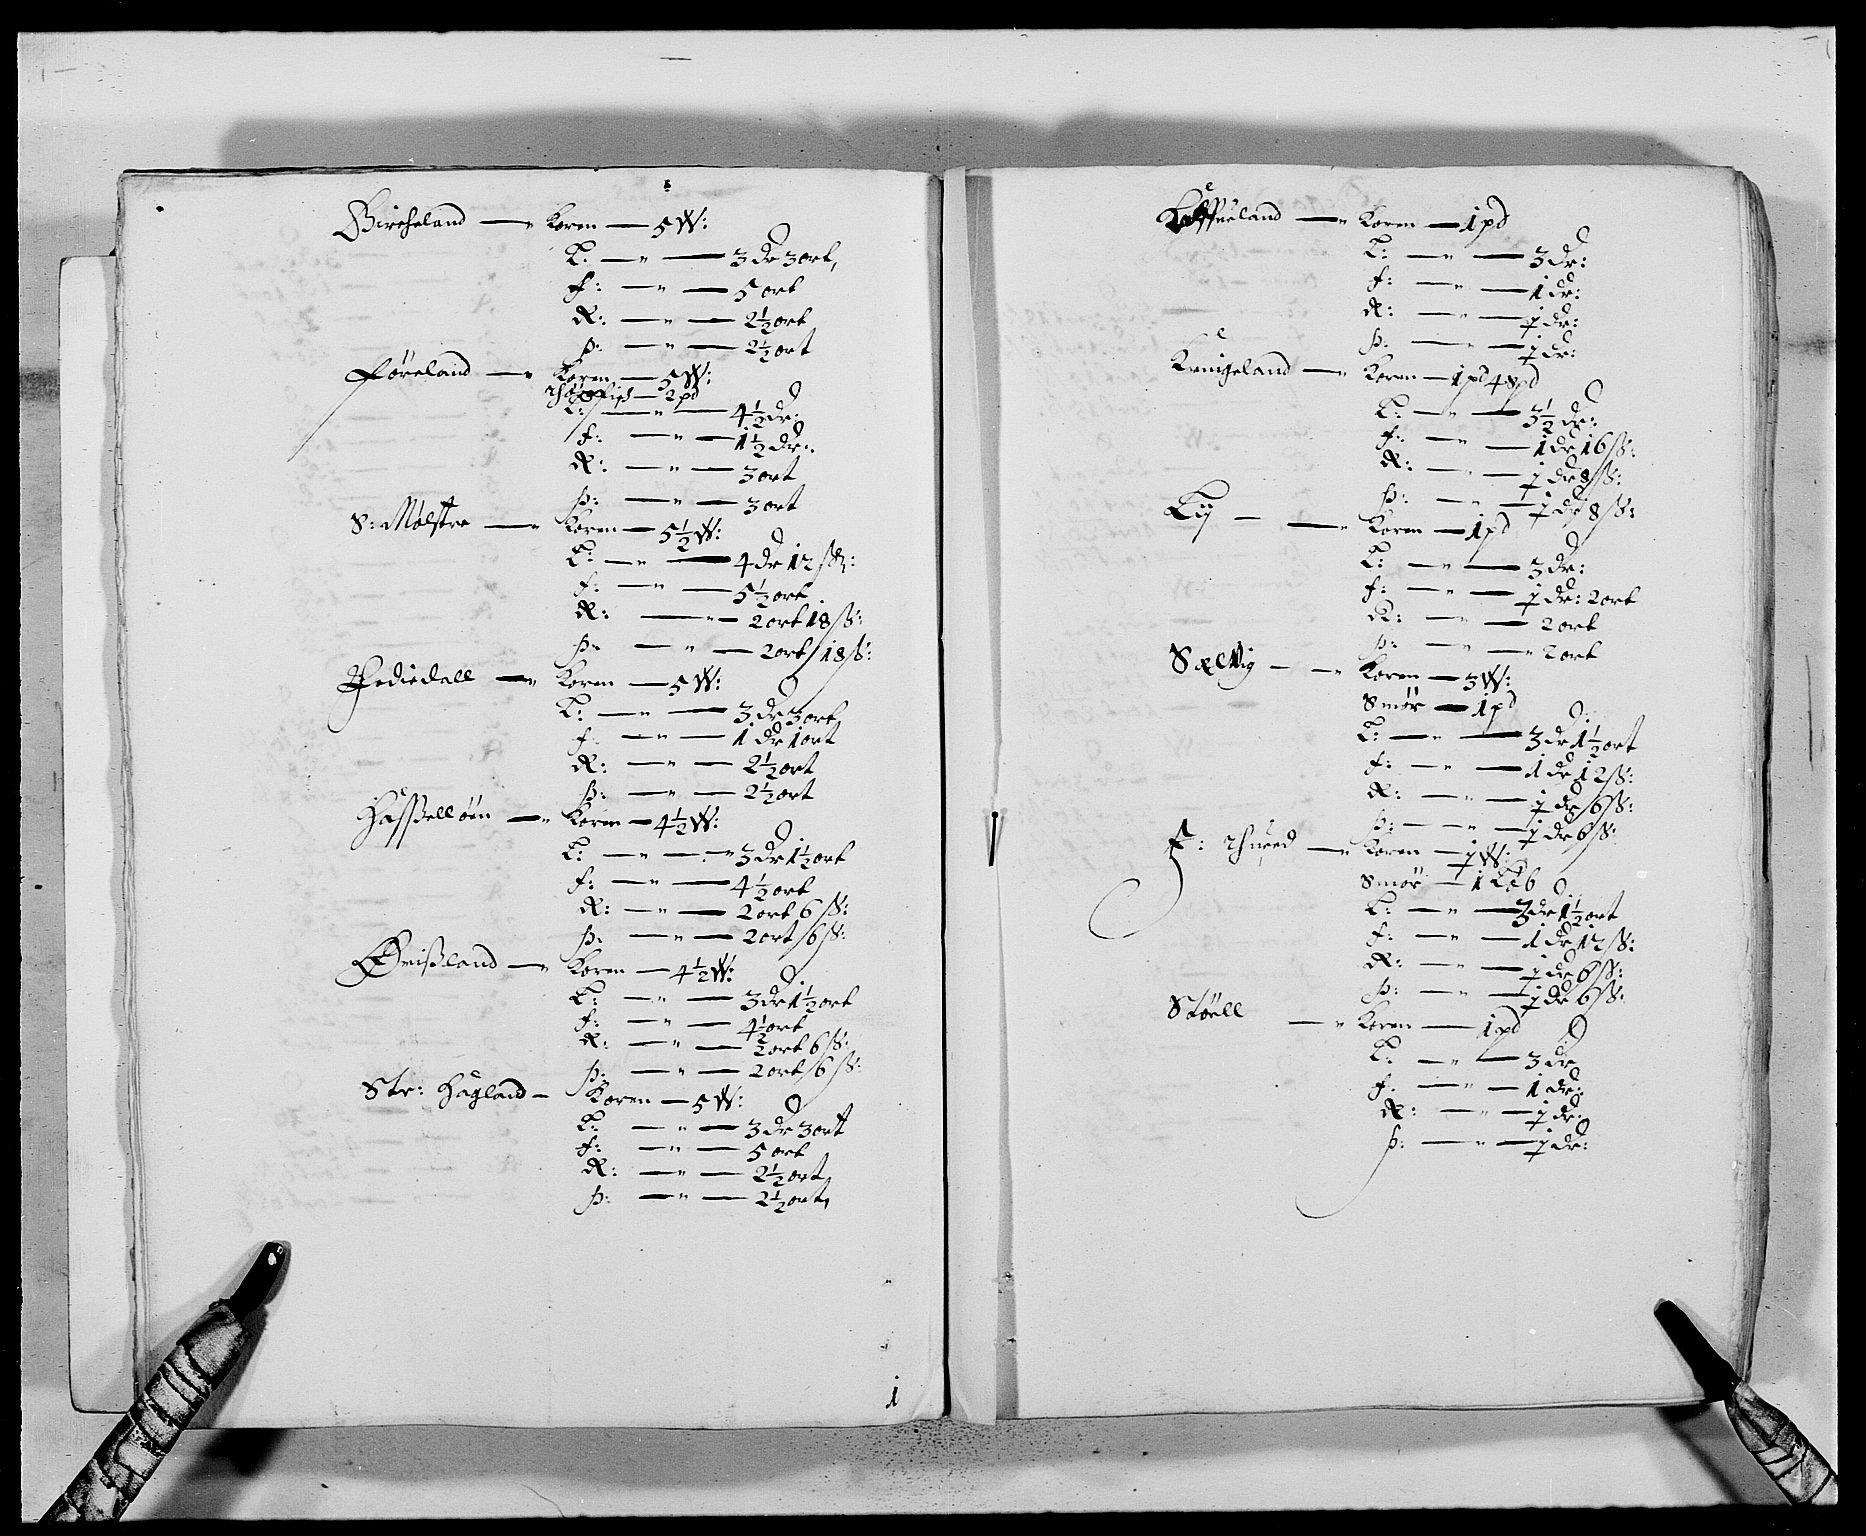 Bircheland — Koren — 5 W:
L: — 3 dr 3 ort,
f: — 5 ort
R: — 2½ ort
þ: — 2½ ort
Føreland — Koren — 5 W:
— 2 pd
L: — 4½ dr:
f: — 1½ dr:
R: — 3 ort
þ: — 3 ort
S: Mølstre — Koren — 5½ W:
L: — 4 dr 12 ß:
f: — 5½ ort
R: — 2 ort 18 ß:
þ: — 2 ort 18 ß:
— Koren — 5 W:
L: — 3 dr 3 ort
f: — 1 dr 1 ort
R: — 2½ ort
þ: — 2½ ort
Haßelløen — Koren — 4½ W:
L: — 3 dr 1½ ort
f: — 4½ ort
R: — 2 ort 6 ß:
þ: — 2 ort 6 ß:
Grißland — Koren — 4½ W:
L: — 3 dr 1½ ort
f: — 4½ ort
R: — 2 ort 6 ß:
þ: — 2 ort 6 ß:
Str: Hagland — Koren — 5 W:
L: — 3 dr 3 ort
f: — 5 ort
R: — 2½ ort
þ: — 2½ ort,
1
— Koren — 1 pd
L: — 3 dr:
f: — 1 dr:
R: — ½ dr:
þ: — ½ dr:
Kringeland — Koren — 1 pd 4 8pd
L: — 3½ dr:
f: — 1 dr 16 ß:
R: — ½ dr 8 ß:
þ: — ½ dr 8 ß:
Lij — Koren — 1 pd
L: — 3 dr:
f: — ½ dr: 2 ort
R: — 2 ort
þ: — 2 ort
Sælvig — Koren — 3 W:
Smør — 1 pd
L: — 3 dr 1½ ort
f: — 1 dr 12 ß:
R: — ½ dr 6 ß:
þ: — ½ dr 6 ß:
— Koren — ½ W:
Smør — 1 Løb
L: — 3 dr 1½ ort
f: — 1 dr 12 ß:
R: — ½ dr 6 ß:
þ: — ½ dr 6 ß:
Støell — Koren — 1 pd
L: — 3 dr
f: — 1 dr:
R: — ½ dr:
þ: — ½ dr: